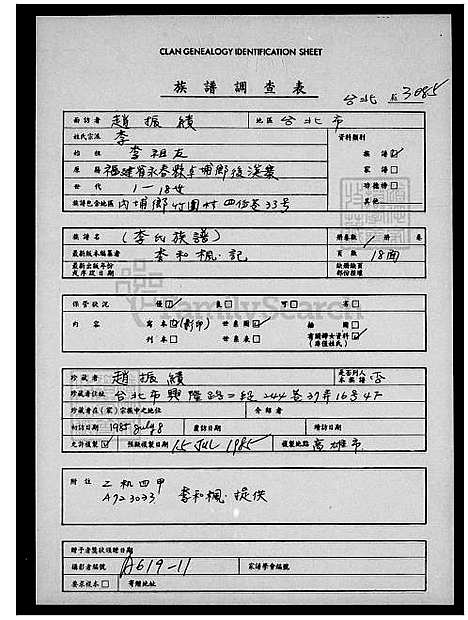 CLAN GENEALOGY IDENTIFICATION SHEET
族譜調查表
台北 3085
面訪者 趙振績 地區 台北市
姓氏宗派 李 資料類別
始祖 李祖友 族譜
原籍 福建省永春縣 鄉後溪 家譜
世代 1-18世 功德榜
族譜包含地區 內埔鄉竹圍村四佰巷33号 其他
族譜名 (李氏族譜) 冊卷數 1 冊 卷
最新版本編纂者 李和楓.記 頁數 18面
最新出版年份或序跋日期 缺漏缺頁部份推確
保管狀況 優 良 可 劣
內容 寫本(影印) 世系圖 插圖
刊本 世系表 有關婦女資料(非僅姓氏)
FamilySearch
珍藏者 趙振績 是否列入本族譜 否
珍藏者住址 台北市興隆路二段244巷37弄16号4F
珍藏者在(家)宗族中之地位 介紹者
初訪日期 1985 July 8 覆訪日期 增訪日期
允許複製 預擬複製日期 15 JUL 1985 複製地點 高雄市
附註 乙机四甲
A723033 李和楓.提供
贈予者獎狀領贈日期
攝影者編號 A619-11 家譜學會編號
要原複本 寄贈地址